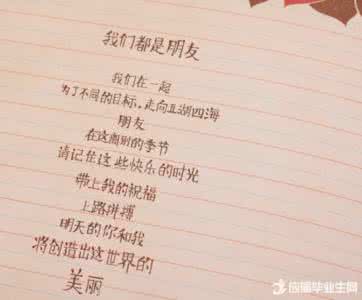 我们都是朋友
我们在一起
为了不同的目标,走向五湖四海
朋友
在这离别的季节
请记住这些快乐的时光
带上我的祝福
上路拼搏
明天的你和我
将创造出这世界的
美丽
应届毕业生网